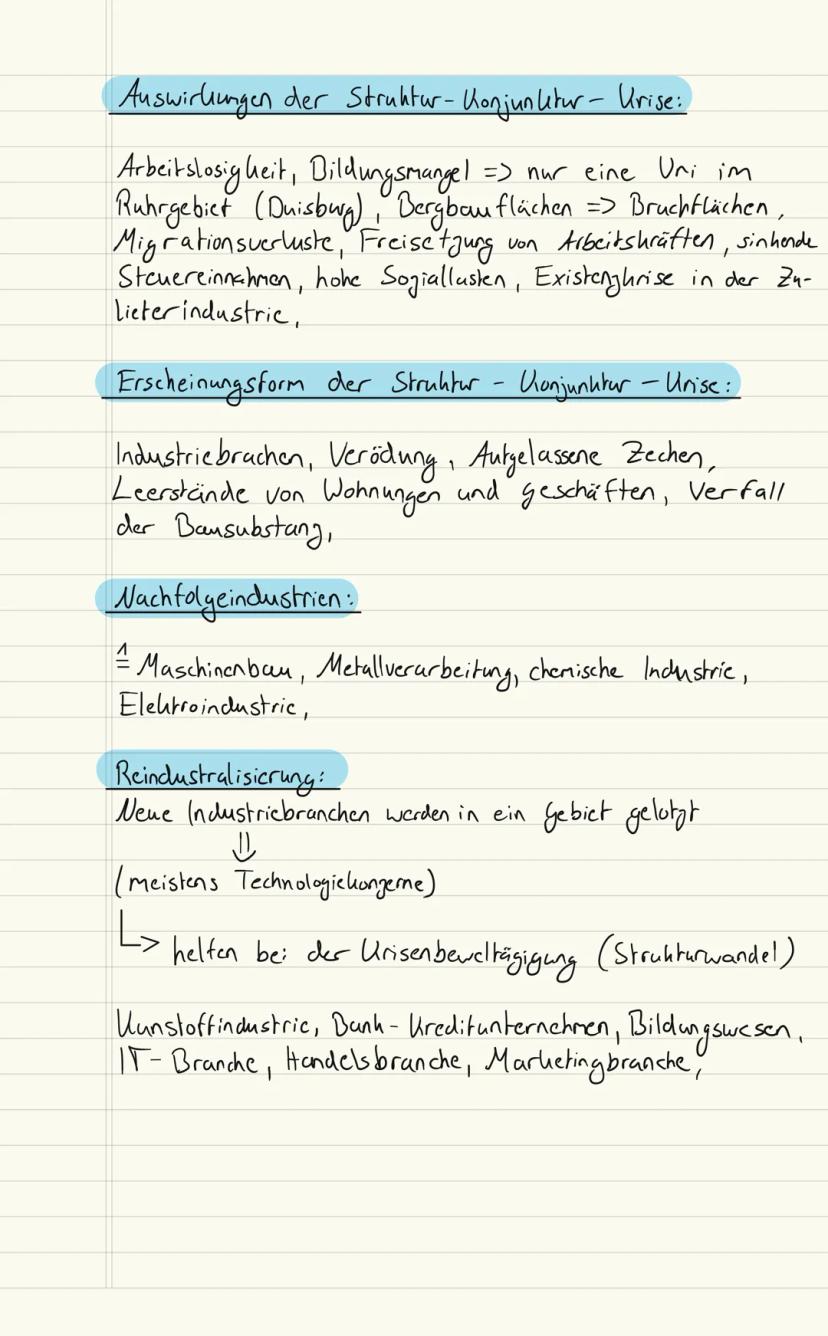 Auswirkungen der Struktur-Konjunktur-Krise:
Arbeitslosigkeit, Bildungsmangel => nur eine Uni im
Ruhrgebiet (Duisburg), Bergbauflächen => Bruchflächen,
Migrationsverluste, Freisetzung von Arbeitskräften, sinkende
Steuereinnahmen, hohe Soziallasten, Existenzkrise in der Zu-
lieferindustrie,
Erscheinungsform der Struktur - Konjunktur - Krise:
Industriebrachen, Verödung, Aufgelassene Zechen,
Leerstände von Wohnungen und Geschäften, Verfall
der Bausubstanz,
Nachfolgeindustrien:
≙ Maschinenbau, Metallverarbeitung, chemische Industrie,
Elektroindustrie,
Reindustralisierung:
Neue Industriebranchen werden in ein Gebiet gelotzt
⇓
(meistens Technologiekonzerne)
↳ helfen bei der Krisenbewältigigung (Strukturwandel)
Kunstoffindustrie, Bank-Kreditunternehmen, Bildungswesen,
IT-Branche, Handelsbranche, Marketingbranche,